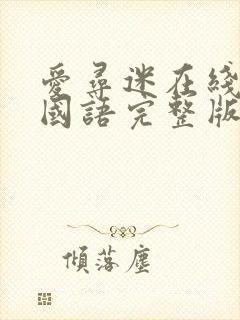 愛尋迷在綫
國語完整版
傾落塵